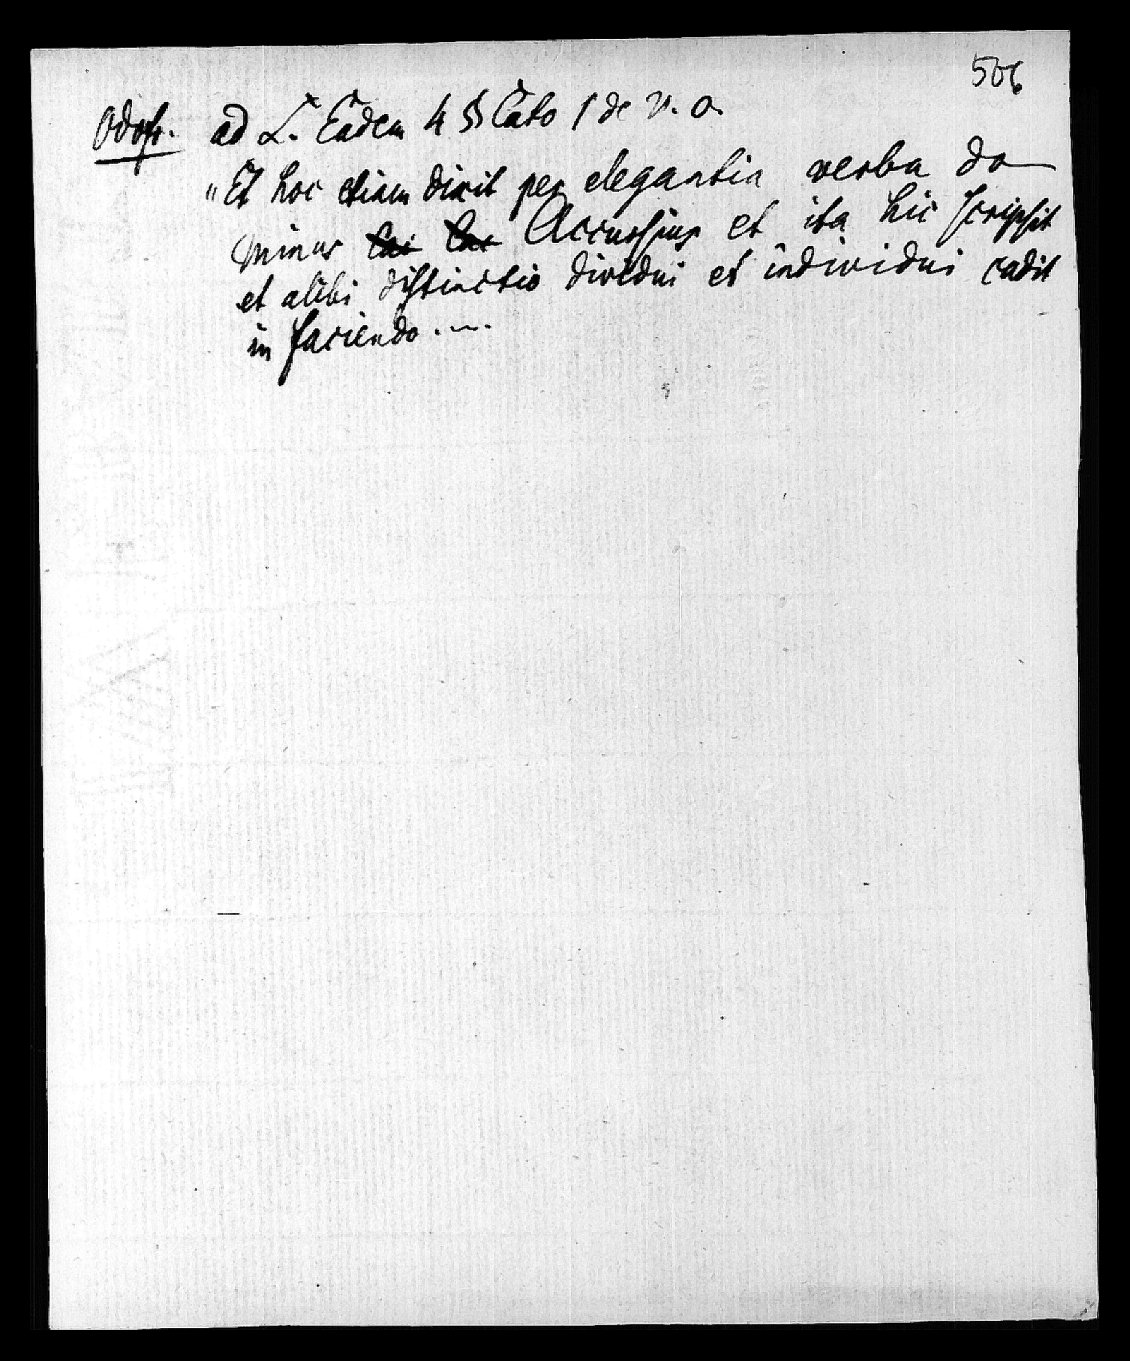 506
Odofr. ad L. Eadem 4 § Cato 1 de v. o.
„Et hoc etiam dicit per elegantia verba do
minus Accursius et ita hic scripsit
et alibi distinctio dividui et individui cadit
in faciendo . —.